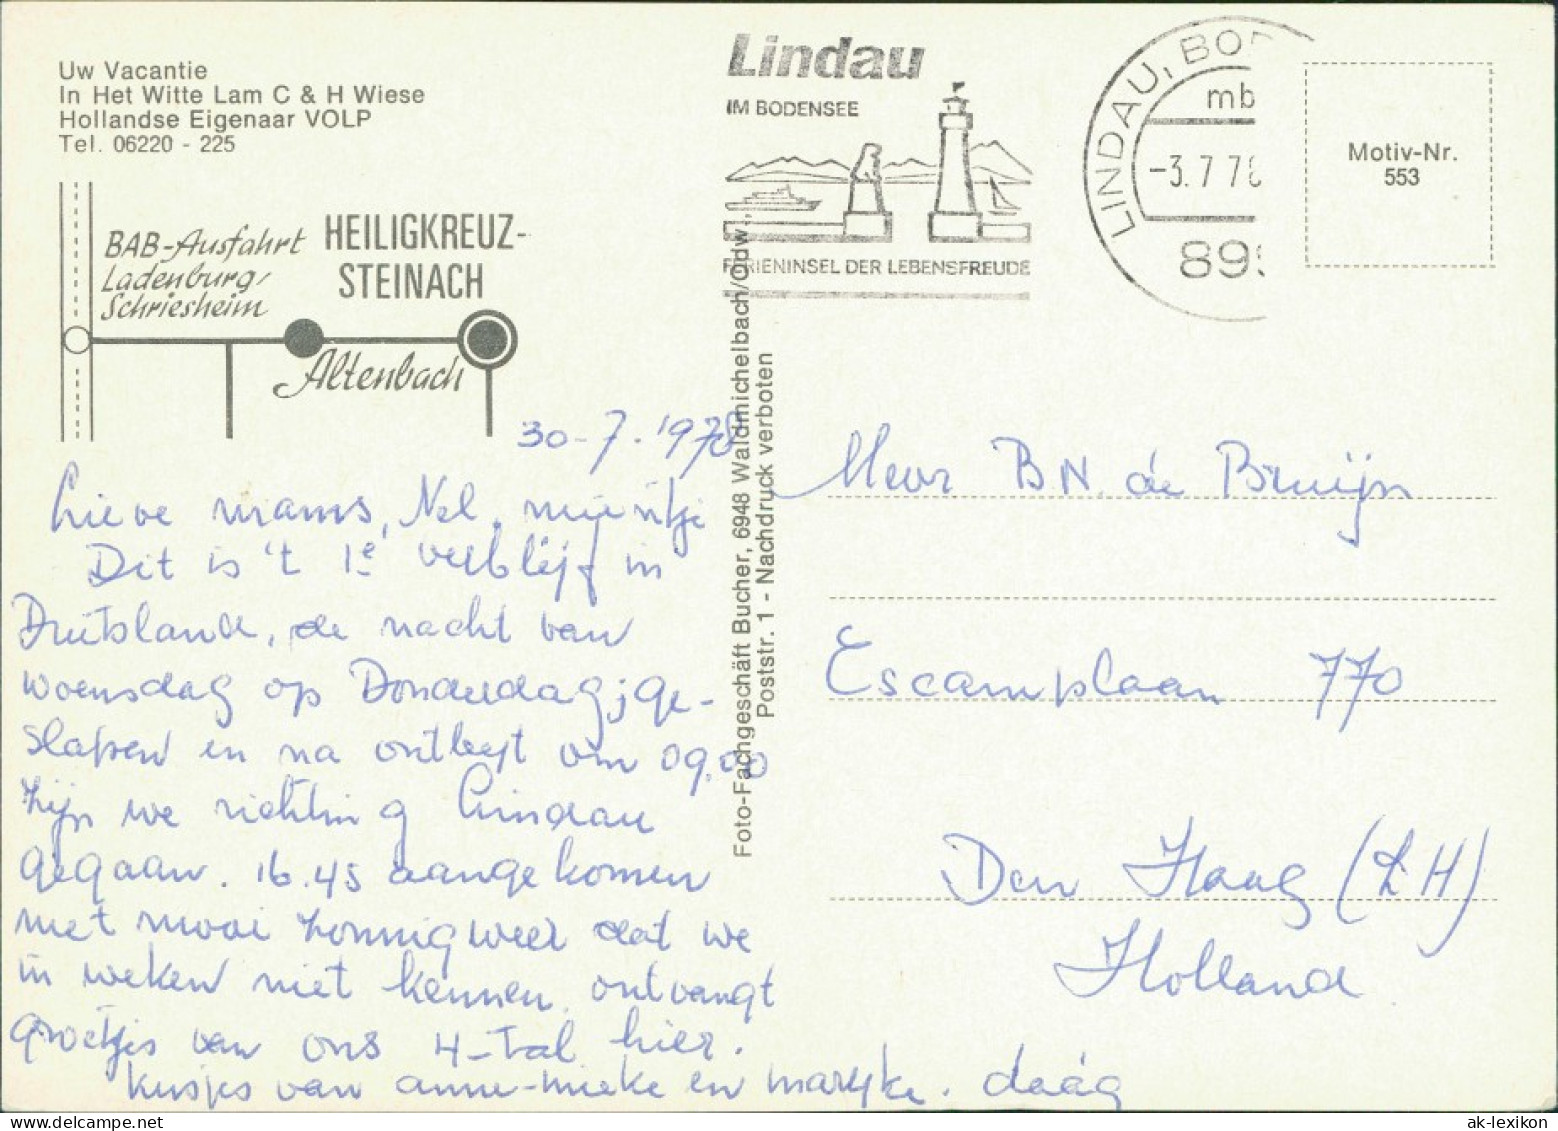 Uw Vacantie
In Het Witte Lam C & H Wiese
Hollandse Eigenaar VOLP
Tel. 06220 - 225
BAB-Ausfahrt
Ladenburg/
Schriesheim
HEILIGKREUZ-
STEINACH
Altenbach
Lindau
IM BODENSEE
FERIENINSEL DER LEBENSFREUDE
LINDAU, BOD
mb
-3.7.78
899
Motiv-Nr.
553
Foto-Fachgeschäft Bucher, 6948 Waldmichelbach/Odw.
Poststr. 1 - Nachdruck verboten
30-7-1978
Lieve mams, Nel,
Dit is 't 1e verblijf in
Duitsland, de nacht van
woensdag op Donderdag ge-
slapen en na ontbijt om 09.00
zijn we richting Lindau
gegaan. 16.45 aangekomen
met mooi zonnig weer dat we
in weken niet kennen, ontvangt
groetjes van ons 4-tal hier.
Kusjes van anne-mieke en marijke. daág
Mevr B.N. de Bruijn
Escamplaan 770
Den Haag (ZH)
Holland
ak-lexikon.com